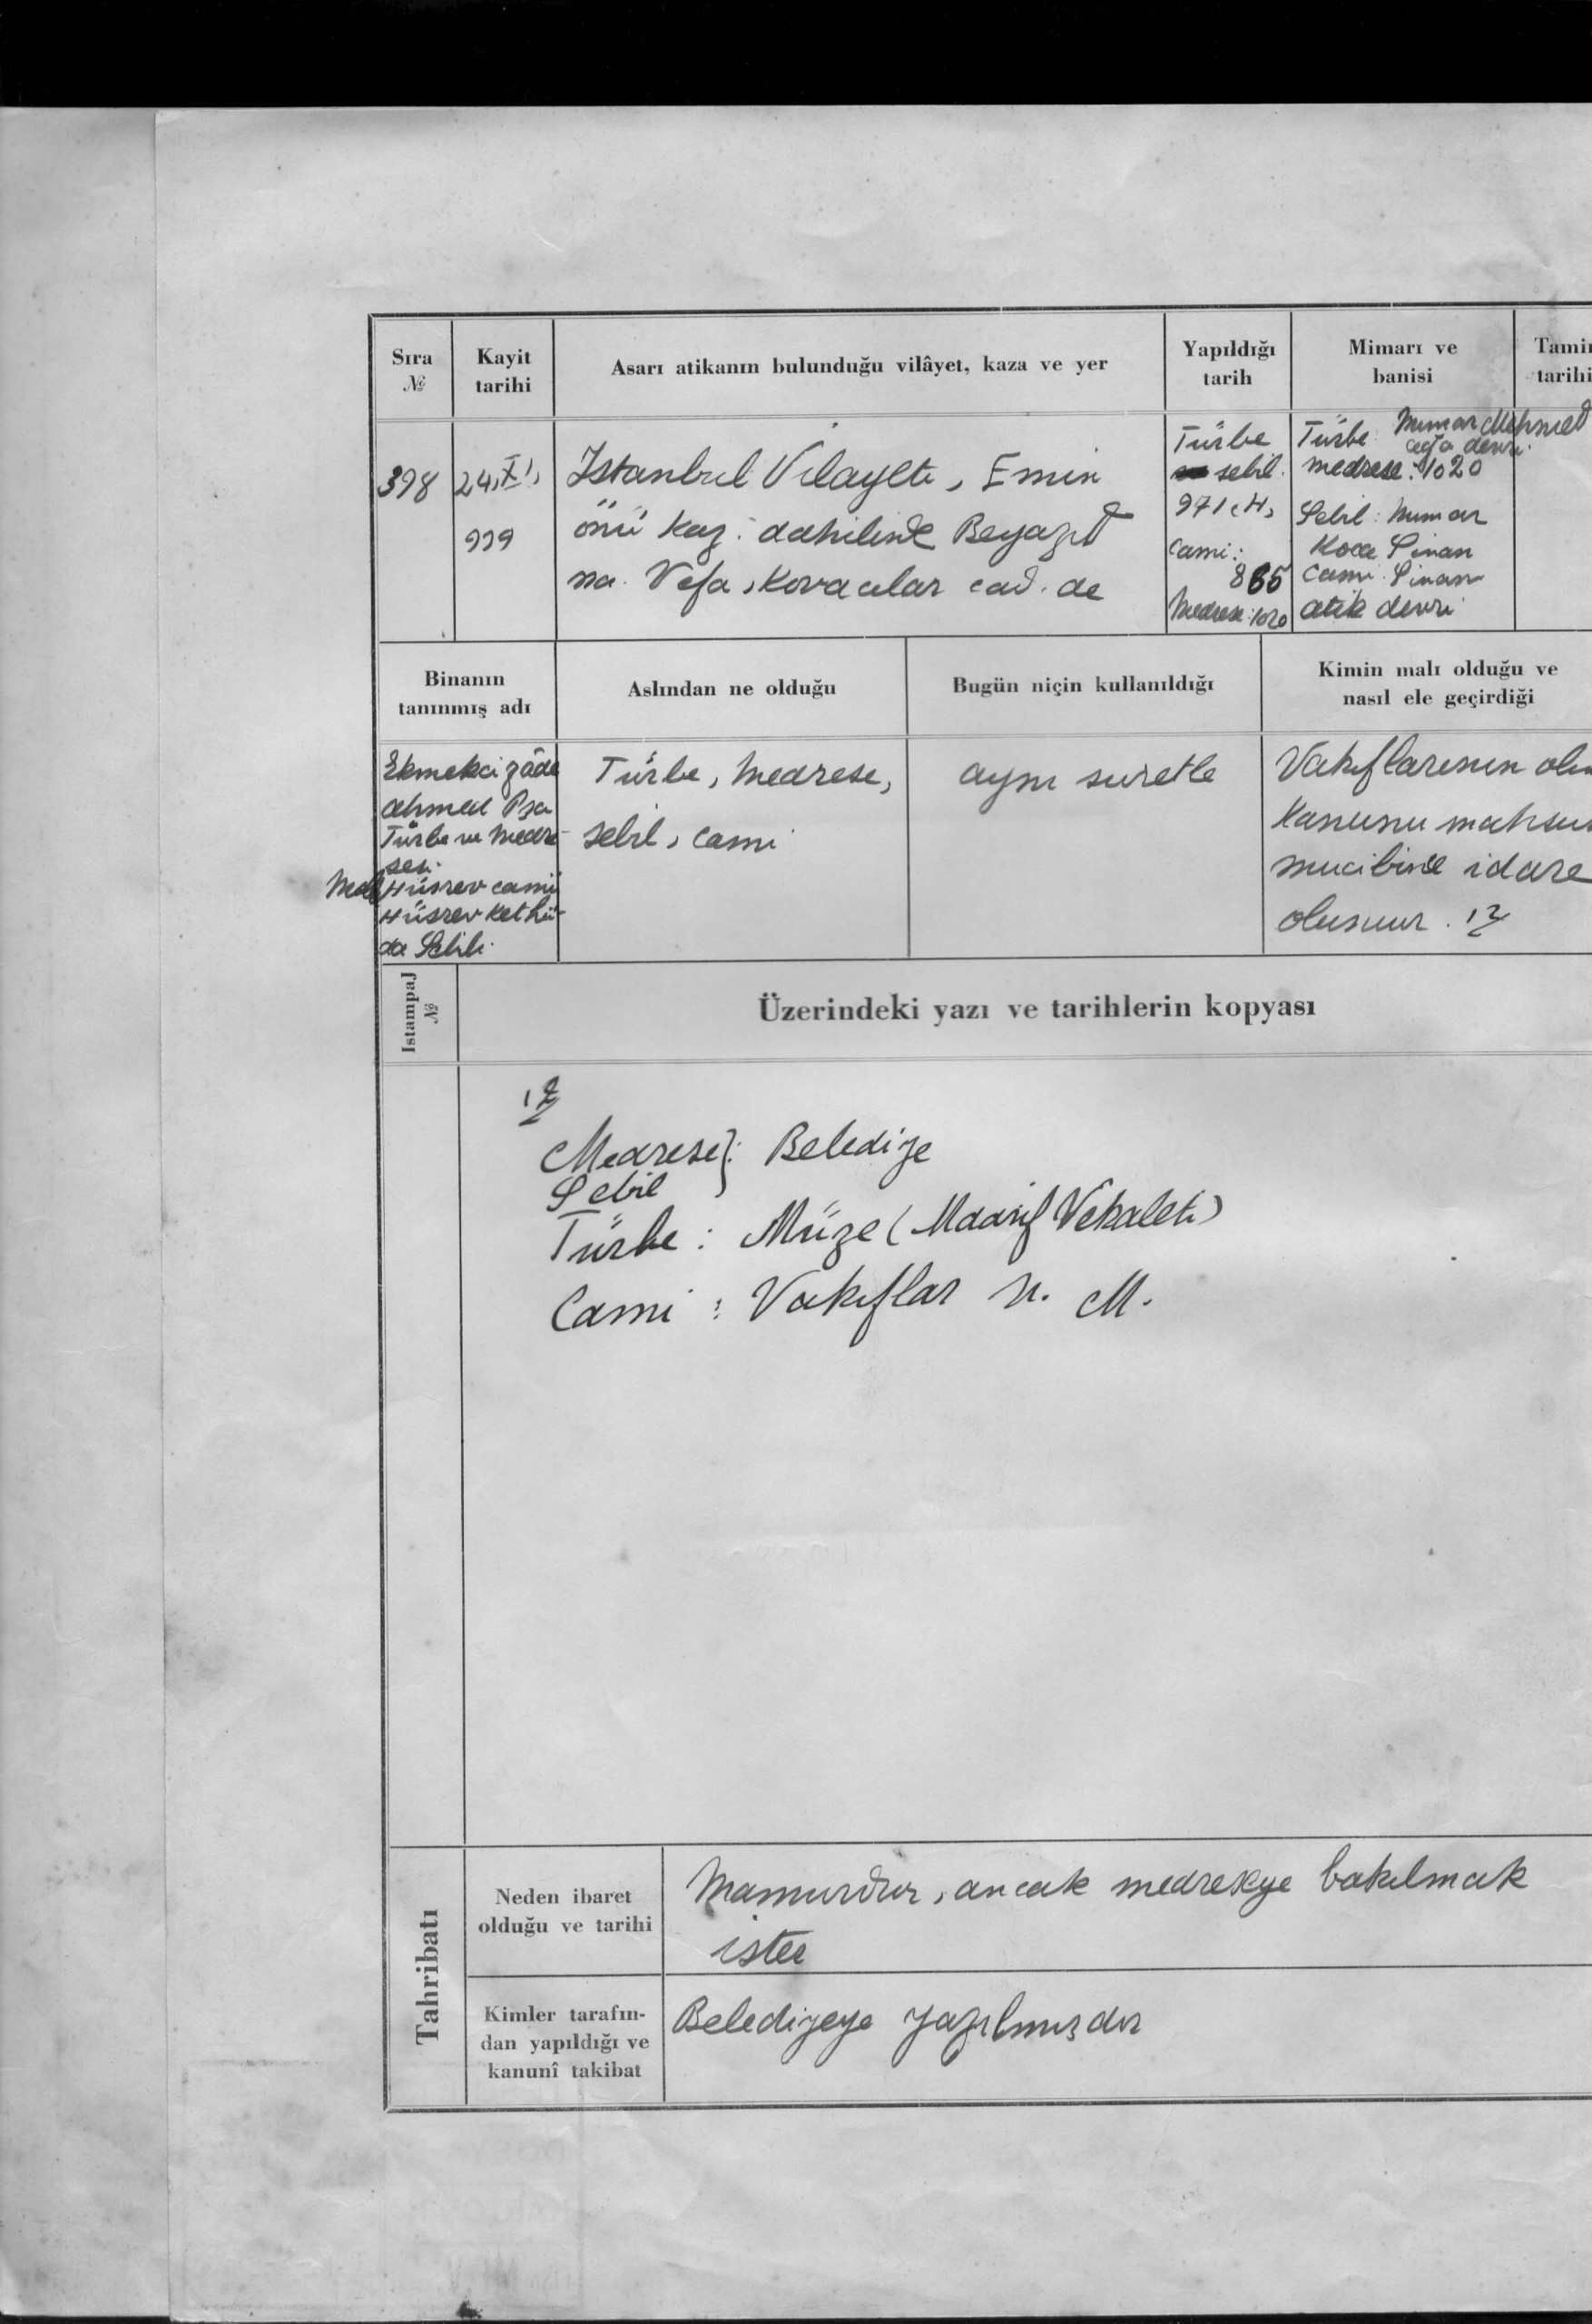 Sıra № Kayit tarihi Asarı atikanın bulunduğu vilâyet, kaza ve yer Yapıldığı tarih Mimarı ve banisi Tamir tarihi
398
24,XI,
939
Istanbul Vilayeti, Emin
önü kaz: dahilinde Beyazıd
na. Vefa, Kovacılar cad. de
Türbe
sebil.
971(H)
Cami:
885
Medrese:1020
Türbe: Mimar Mehmed
ağa devri.
medrese:1020
Sebil: Mimar
Koca Sinan
Cami: Sinan
atik devri
Binanın tanınmış adı
Aslından ne olduğu
Bugün niçin kullanıldığı
Kimin malı olduğu ve nasıl ele geçirdiği
Ekmekci zâde
Ahmed Pşa
Türbe ve Medre-
sesi.
Hüsrev camii
Hüsrev Kethü-
da Sebili.
Türbe, Medrese,
sebil, cami
aynı suretle
Vakıflarının
Kanunu mahsus
mucibince idare
olunur. 12
Istampaj №
Üzerindeki yazı ve tarihlerin kopyası
12
Medrese}: Belediye
Sebil
Türbe: Müze (Maarif Vekaleti)
Cami: Vakıflar U. M.
Tahribatı
Neden ibaret
olduğu ve tarihi
Mamurdur, ancak medreseye bakılmak
ister
Kimler tarafın-
dan yapıldığı ve
kanunî takibat
Belediyeye yazılmışdır